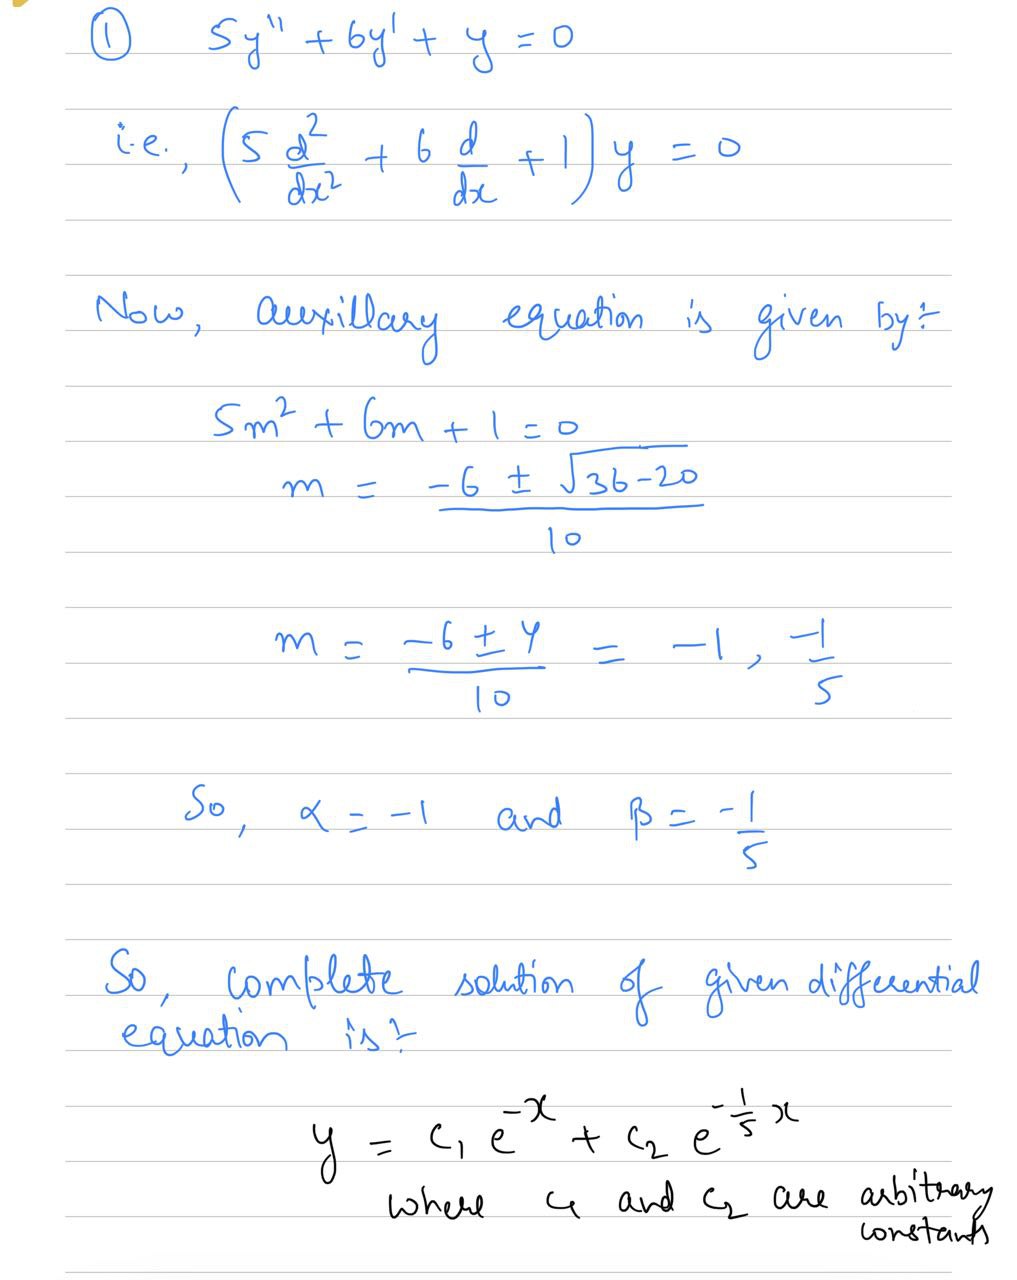 ① 5y'' + 6y' + y = 0
i.e., (5 d²/dx² + 6 d/dx + 1) y = 0
Now, auxillary equation is given by:-
5m² + 6m + 1 = 0
m = (-6 ± √(36-20))/10
m = (-6 ± 4)/10 = -1, -1/5
So, α = -1 and β = -1/5
So, complete solution of given differential
equation is:-
y = c₁ e^(-x) + c₂ e^(-1/5 x)
where c₁ and c₂ are arbitrary
constants